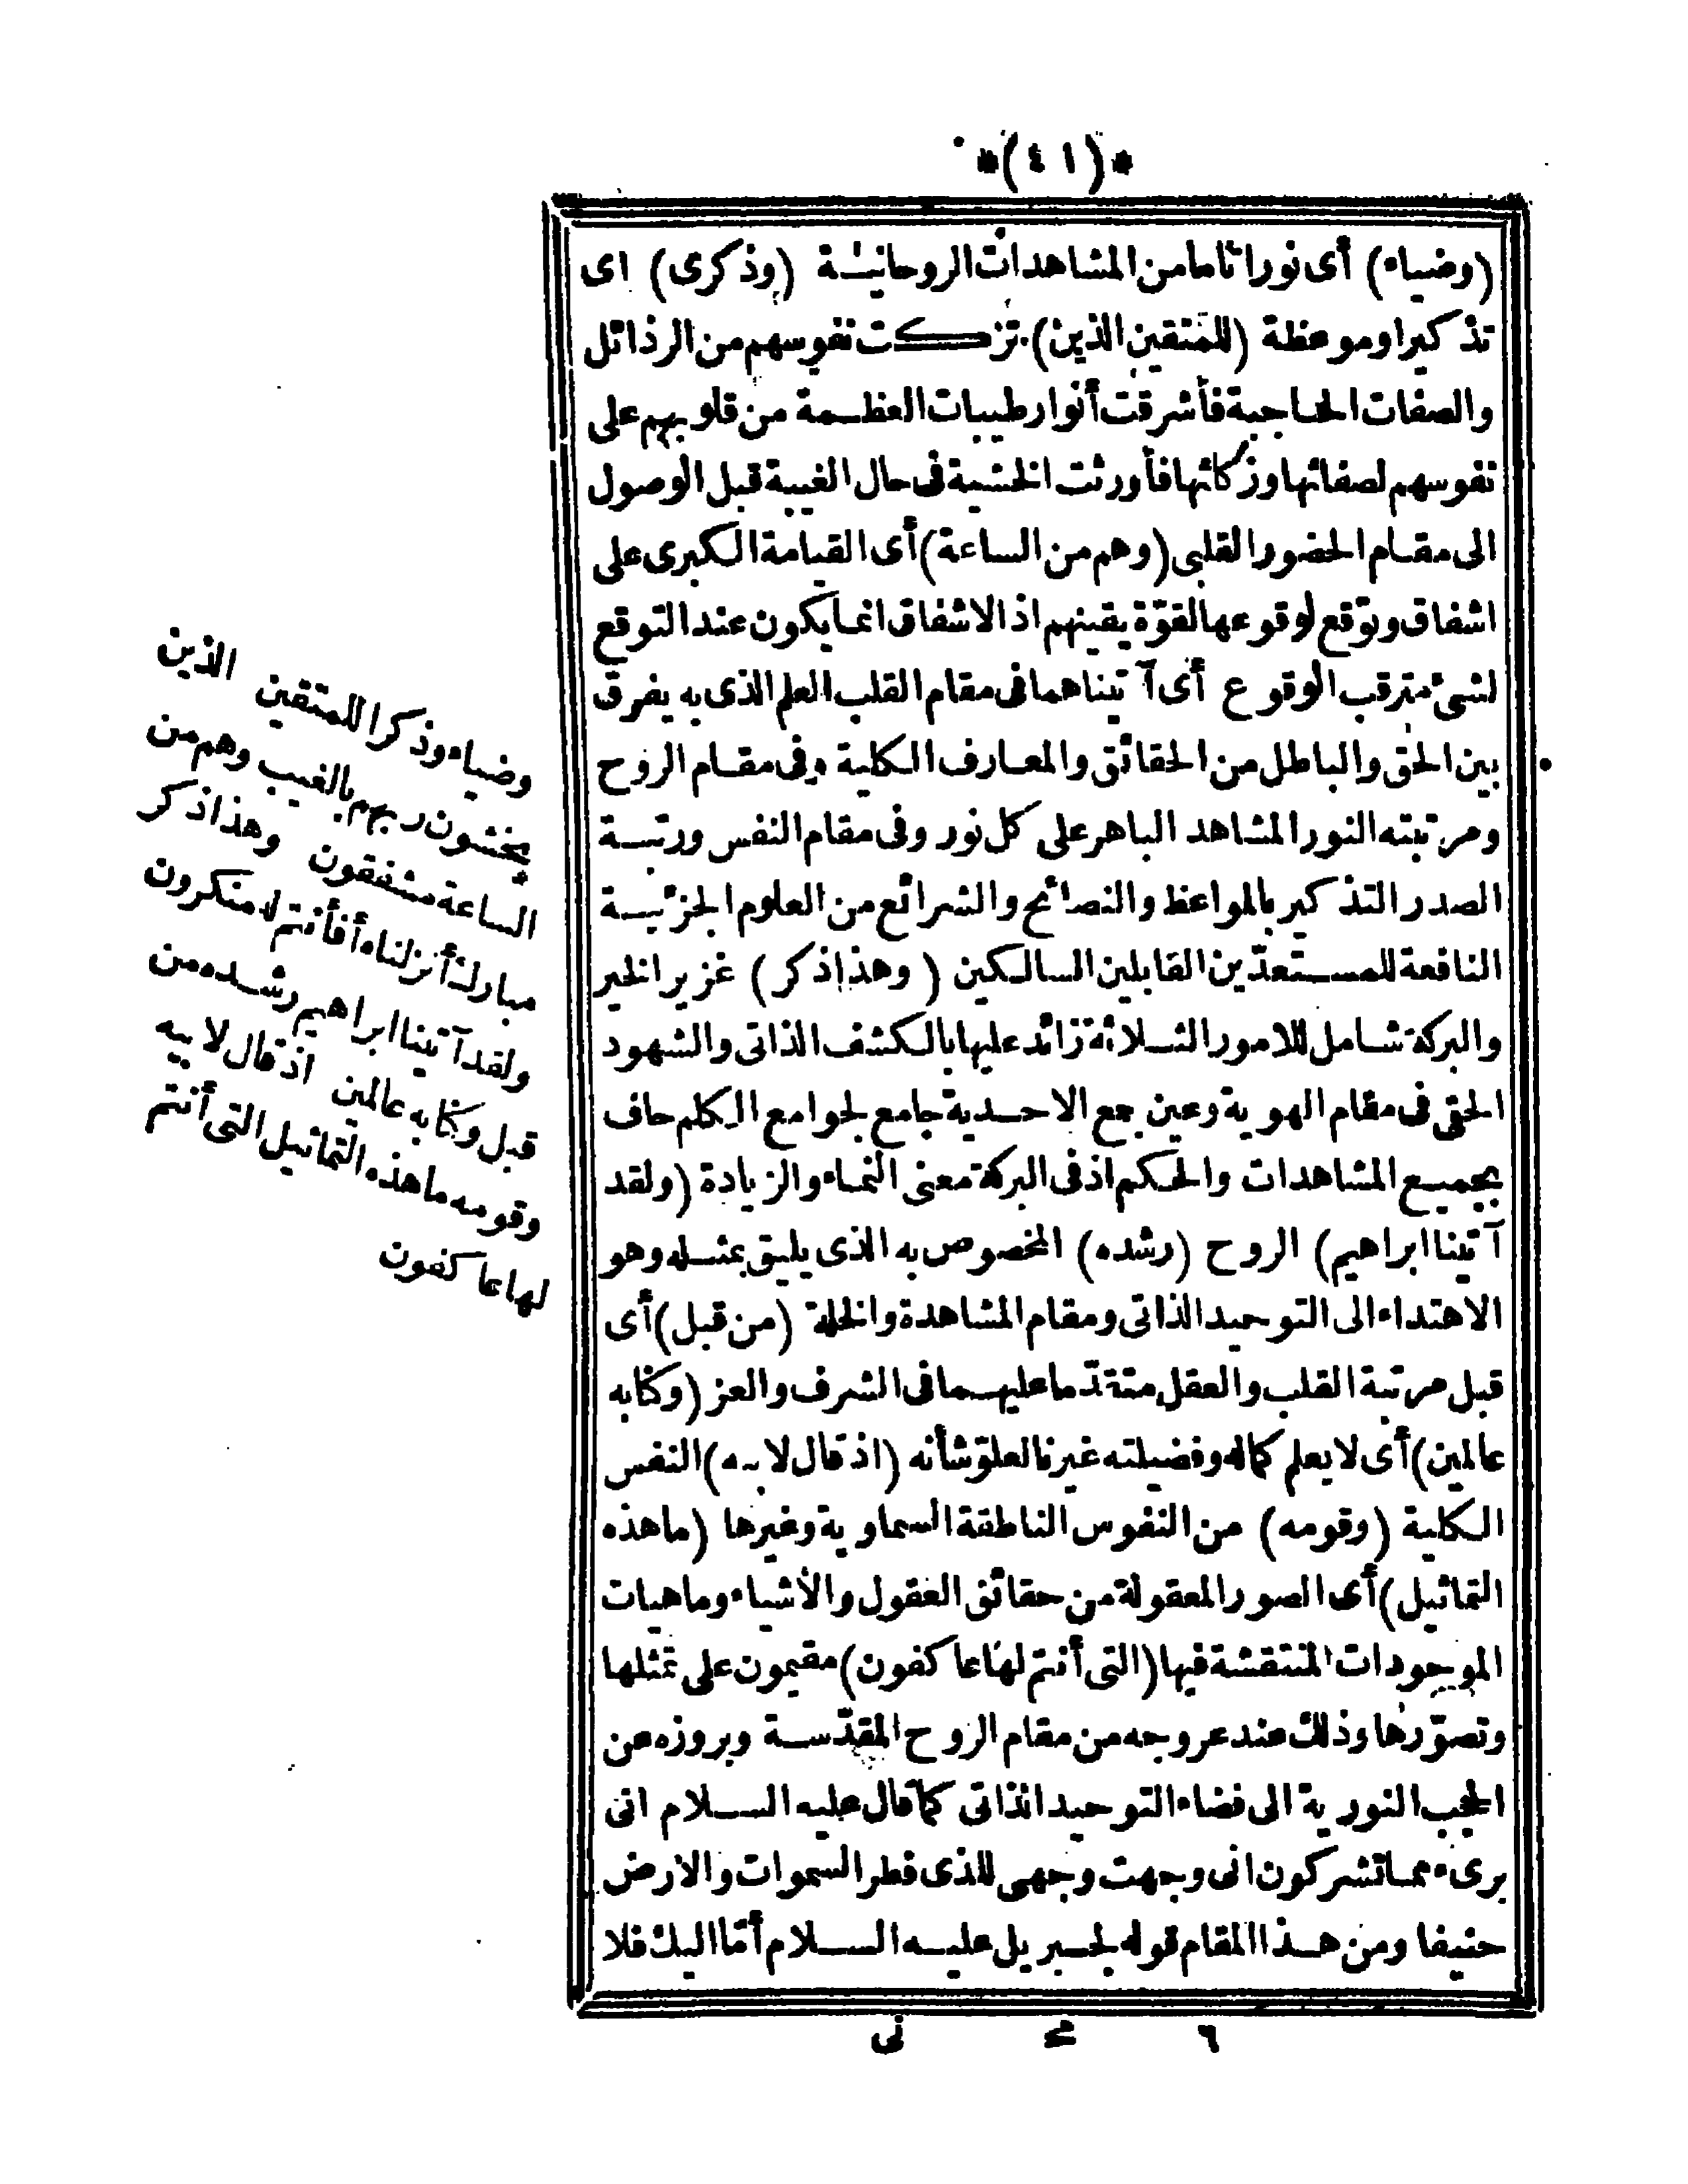 *(٤١)*
(وضياء) أى نورا تاما من المشاهدات الروحانية (وذكرى) اى
تذكيرا وموعظة (للمتقين الذين) تزكت نفوسهم من الرذائل
والصفات الحاجبة فأشرقت أنوار طيبات العظمة من قلوبهم على
نفوسهم لصفائها وزكائها فأورثت الخشية فى حال الغيبة قبل الوصول
الى مقام الحضور القلبى (وهم من الساعة) أى القيامة الكبرى على
اشفاق وتوقع لوقوعها لقوّة يقينهم اذ الاشفاق انما يكون عند التوقع
لشئ مترقب الوقوع أى آتيناهما فى مقام القلب العلم الذى به يفرق
بين الحق والباطل من الحقائق والمعارف الكلية وفى مقام الروح
ومرتبته النور المشاهد الباهر على كل نور وفى مقام النفس ورتبة
الصدر التذكير بالمواعظ والنصائح والشرائع من العلوم الجزئية
النافعة للمستعدّين القابلين السالكين (وهذا ذكر) غزير الخير
والبركة شامل للامور الثلاثة زائد عليها بالكشف الذاتى والشهود
الحقى فى مقام الهوية وعين جمع الاحدية جامع لجوامع الكلم حاف
بجميع المشاهدات والحكم اذ فى البركة معنى النماء والزيادة (ولقد
آتينا ابراهيم) الروح (رشده) المخصوص به الذى يليق بمثله وهو
الاهتداء الى التوحيد الذاتى ومقام المشاهدة والخلة (من قبل) أى
قبل مرتبة القلب والعقل متقدّما عليهما فى الشرف والعز (وكنا به
عالمين) أى لا يعلم كماله وفضيلته غيرنا لعلوّ شأنه (اذ قال لابيه) النفس
الكلية (وقومه) من النفوس الناطقة السماوية وغيرها (ما هذه
التماثيل) أى الصور المعقولة من حقائق العقول والأشياء وماهيات
الموجودات المنتقشة فيها (التى أنتم لها عاكفون) مقيمون على تمثلها
وتصوّرها وذلك عند عروجه من مقام الروح المقدّسة وبروزه عن
الحجب النورية الى فضاء التوحيد الذاتى كما قال عليه السلام انى
برىء مما تشركون انى وجهت وجهى للذى فطر السموات والارض
حنيفا ومن هذا المقام قوله لجبريل عليه السلام أمّا اليك فلا
٦ مح نى
وضياء وذكرا للمتقين الذين
يخشون ربهم بالغيب وهم من
الساعة مشفقون وهذا ذكر
مبارك أنزلناه أفأنتم له منكرون
ولقد آتينا ابراهيم رشده من
قبل وكنا به عالمين اذ قال لابيه
وقومه ما هذه التماثيل التى أنتم
لها عاكفون